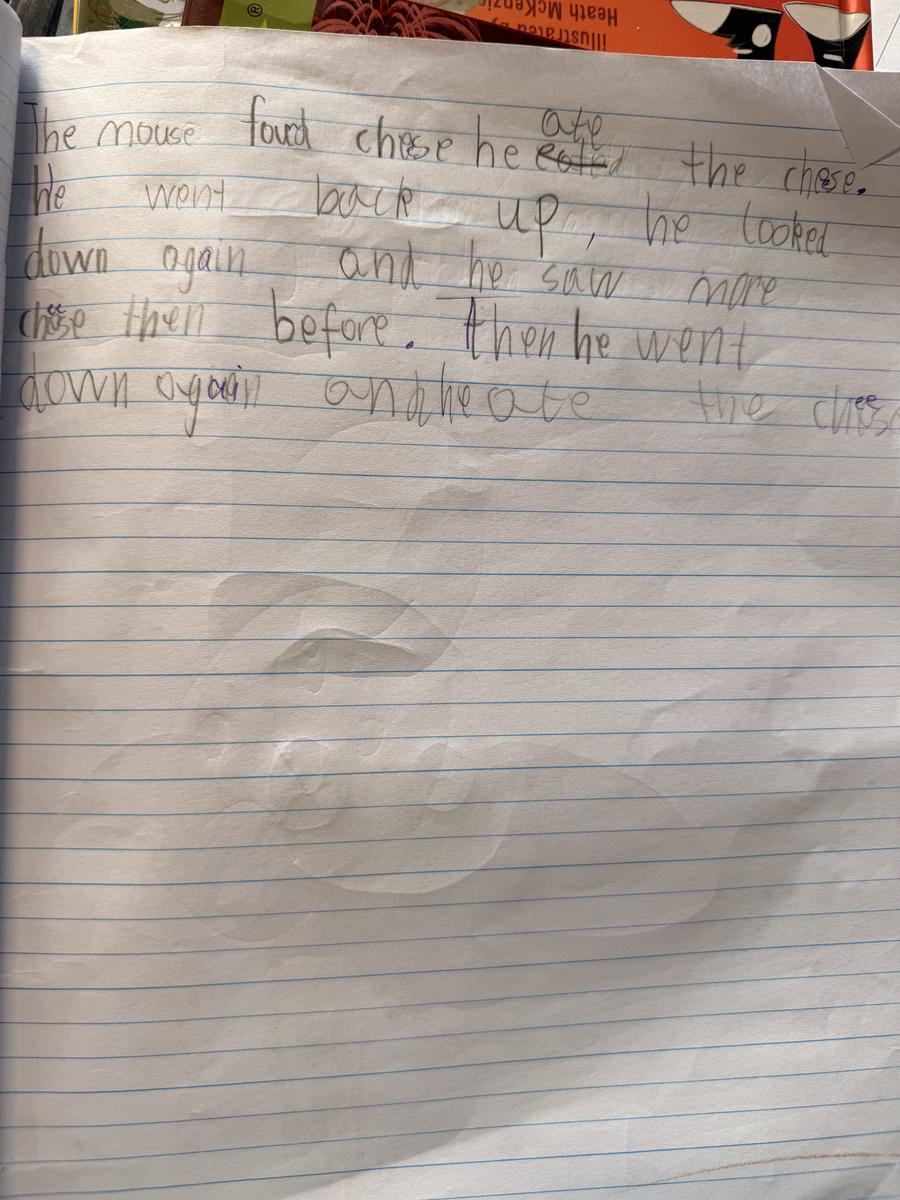 illustrated by
Heath McKenzie
®
The mouse found chese he ate eated the chese.
He went back up, he looked
down again and he saw more
cheese then before. then he went
down again and he ate the chees